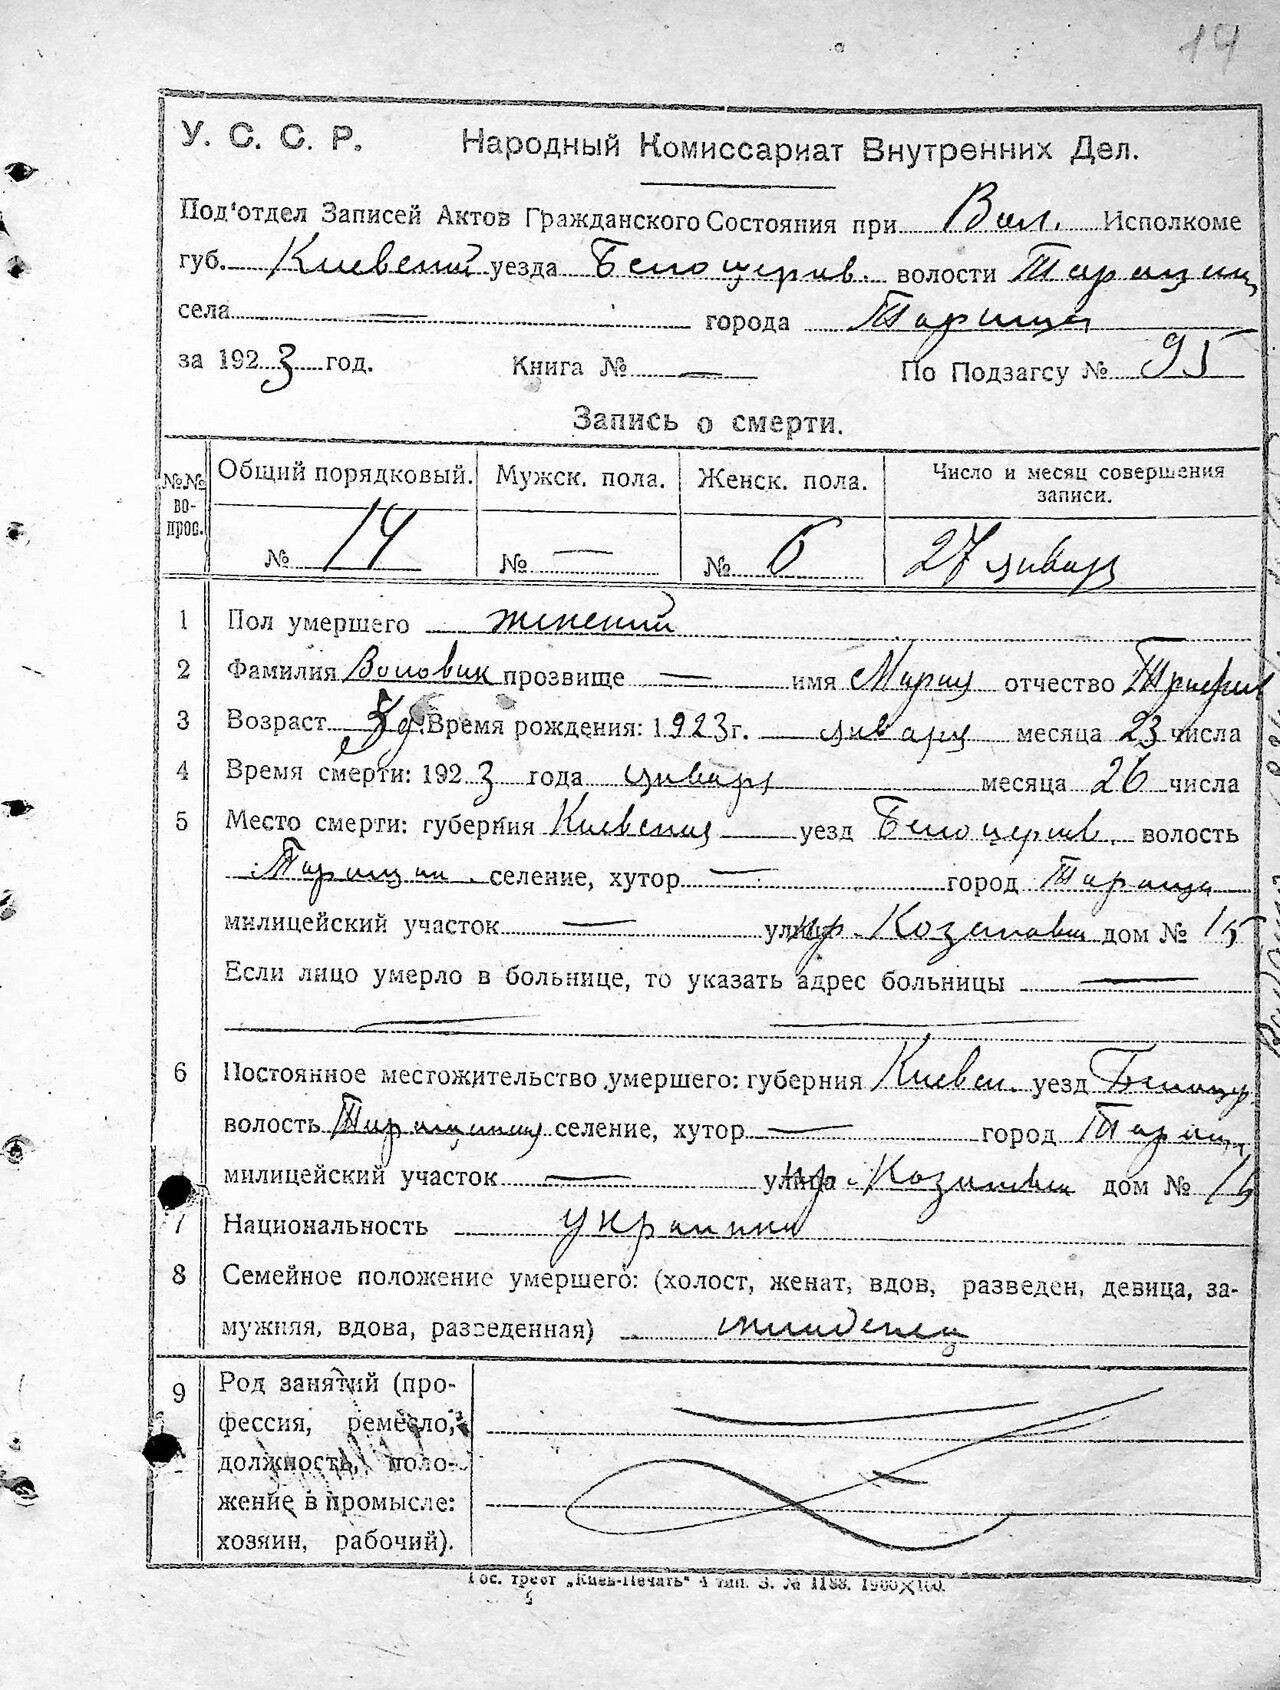 14
У. С. С. Р. Народный Комиссариат Внутренних Дел.
Под'отдел Записей Актов Гражданского Состояния при Вол. Исполкоме
губ. Киевской уезда Белоцерков. волости Таращан
села — города Тараща
за 1923 год. Книга № — По Подзагсу № 95
Запись о смерти.
№№ вопрос. Общий порядковый. Мужск. пола. Женск. пола. Число и месяц совершения записи.
№ 14 № — № 6 27 января
1 Пол умершего женский
2 Фамилия Воловик прозвище — имя Мария отчество
3 Возраст 3 д. Время рождения: 1923 г. января месяца 23 числа
4 Время смерти: 1923 года января месяца 26 числа
5 Место смерти: губерния Киевская уезд Белоцерков. волость
Таращан. селение, хутор — город Тараща
милицейский участок — улица пр. дом № 15
Если лицо умерло в больнице, то указать адрес больницы —
6 Постоянное местожительство умершего: губерния Киевск. уезд Белоцер.
волость Таращанская селение, хутор — город Таращ
милицейский участок — улица пр. дом № 15
7 Национальность украинка
8 Семейное положение умершего: (холост, женат, вдов, разведен, девица, за-
мужняя, вдова, разведенная) младенец
9 Род занятий (про-
фессия, ремесло,
должность, поло-
жение в промысле:
хозяин, рабочий).
Гос. трест „Киев-Печать“ 4 тип. З. № 1188. 1900×100.